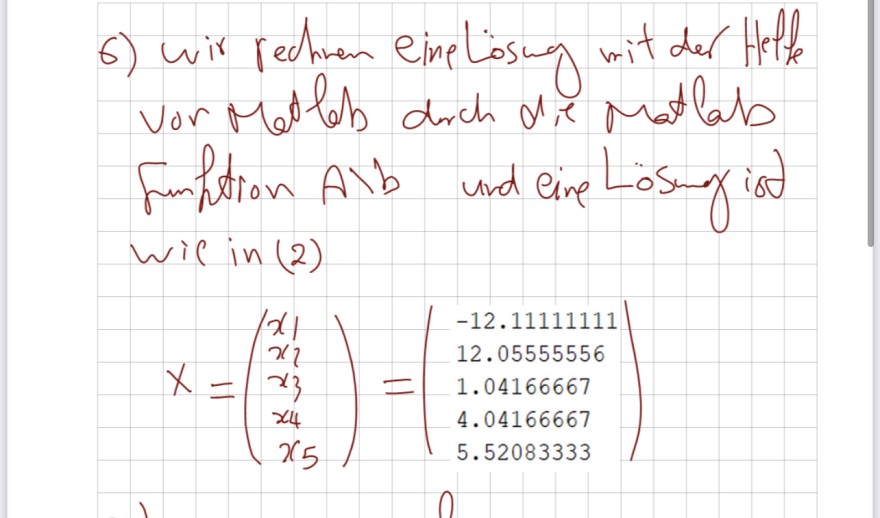 6) wir rechnen eine Lösung mit der Helfe
von Matlab durch die Matlab
Funktion A\b und eine Lösung ist
wie in (2)
X = (x1 x2 x3 x4 x5) = (-12.11111111 12.05555556 1.04166667 4.04166667 5.52083333)